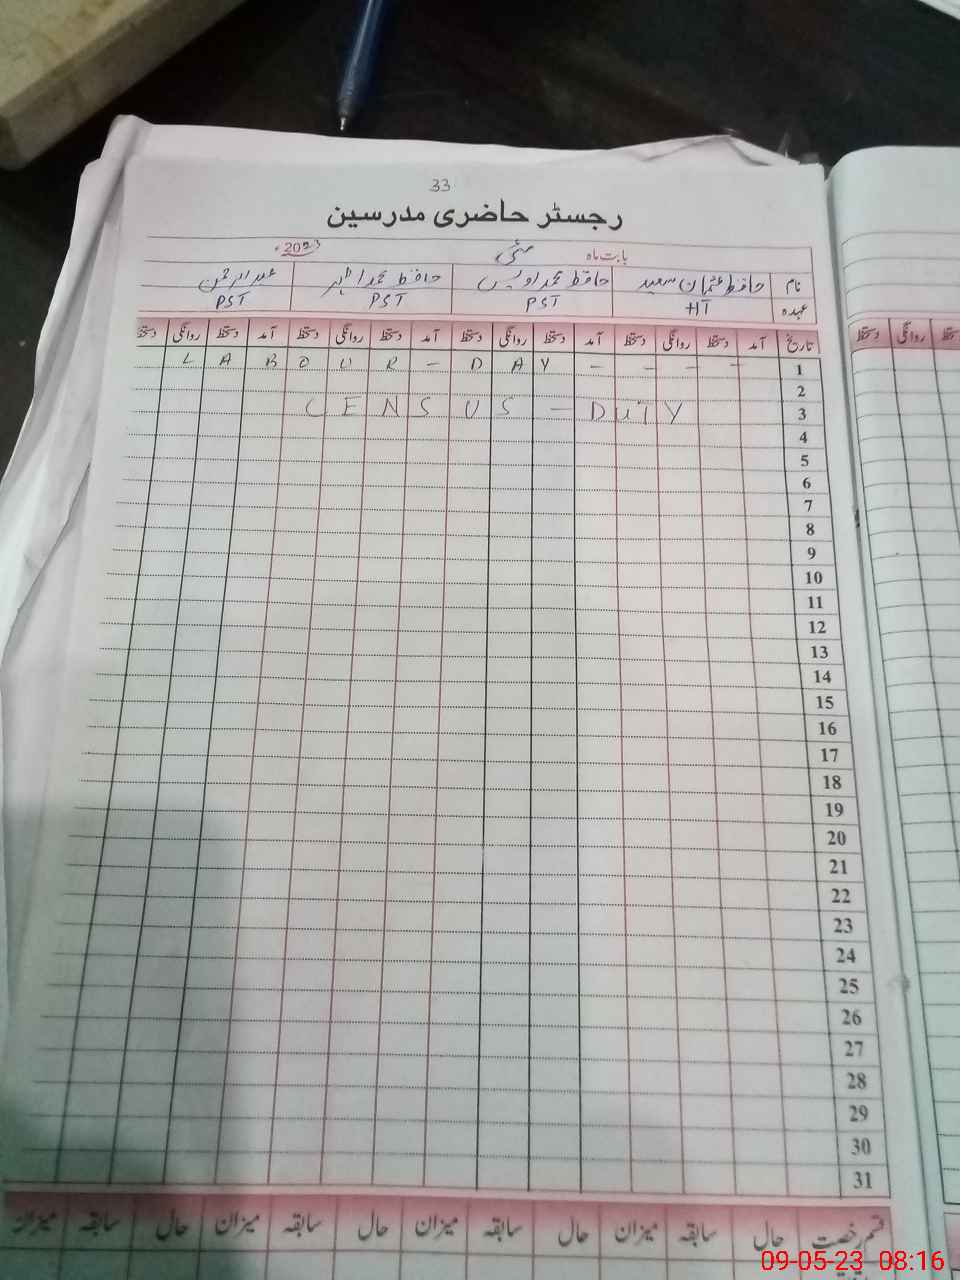 33
رجسٹر حاضری مدرسین
بابت ماہ مئی 2023ء
نام حافظ عثمان سعید حافظ محمد اویس حافظ محمد اظہر عبدالرحمن
عہدہ HT PST PST PST
تاریخ آمد دستخط روانگی دستخط آمد دستخط روانگی دستخط آمد دستخط روانگی دستخط آمد دستخط روانگی دستخط
1 LABOUR - DAY - - - -
2
3 CENSUS - DUTY
4
5
6
7
8
9
10
11
12
13
14
15
16
17
18
19
20
21
22
23
24
25
26
27
28
29
30
31
قسم رخصت حال سابقہ میزان حال سابقہ میزان حال سابقہ میزان حال سابقہ میزان
دستخط روانگی
09-05-23 08:16